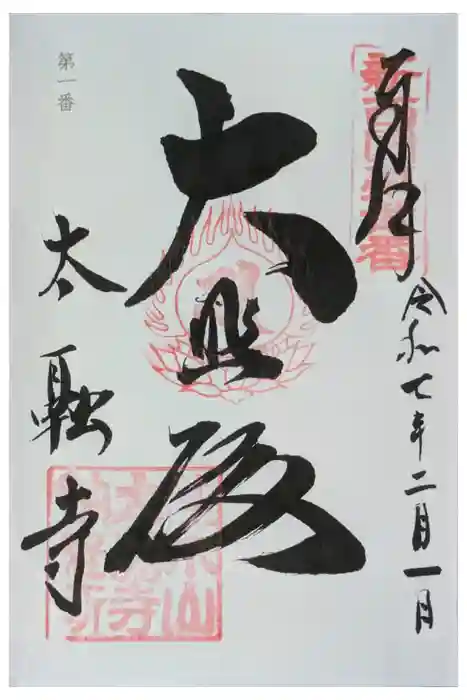 奉拝
令和七年二月一日
大悲殿
第一番
太融寺